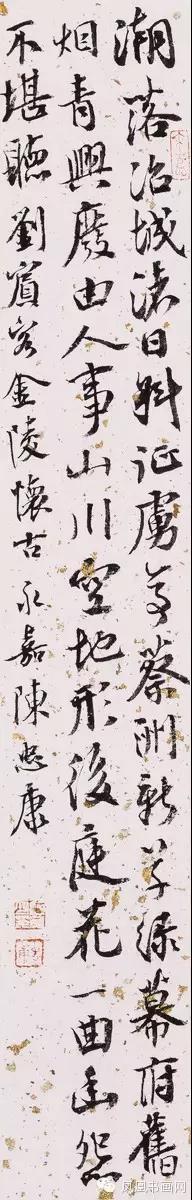 潮落冶城渚日斜征虜亭蔡洲新草緑幕府舊
烟青興廢由人事山川空地形後庭花一曲幽怨
不堪聽劉賓客金陵懷古永嘉陳忠康
凤凰书画网